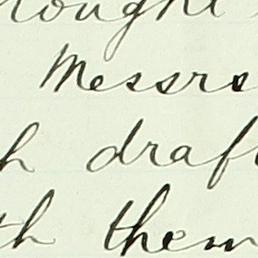 ought
Messrs
h draf
th them